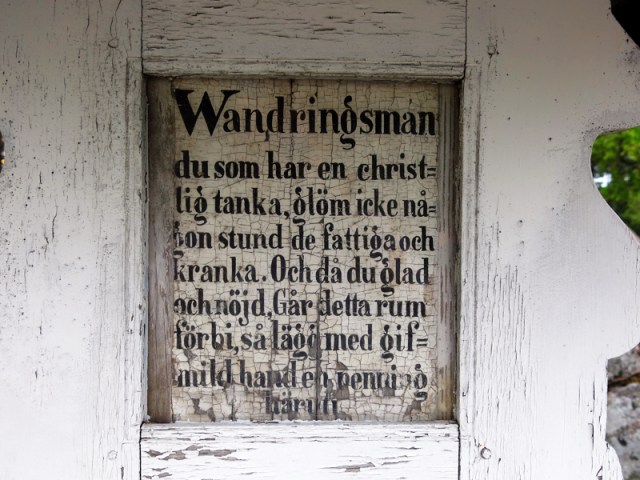 Wandringsman
du som har en christ=
lig tanka, glöm icke nå=
gon stund de fattiga och
kranka. Och då du glad
och nöjd, Går detta rum
förbi, så lägg med gif=
mild hand en penning
häruti